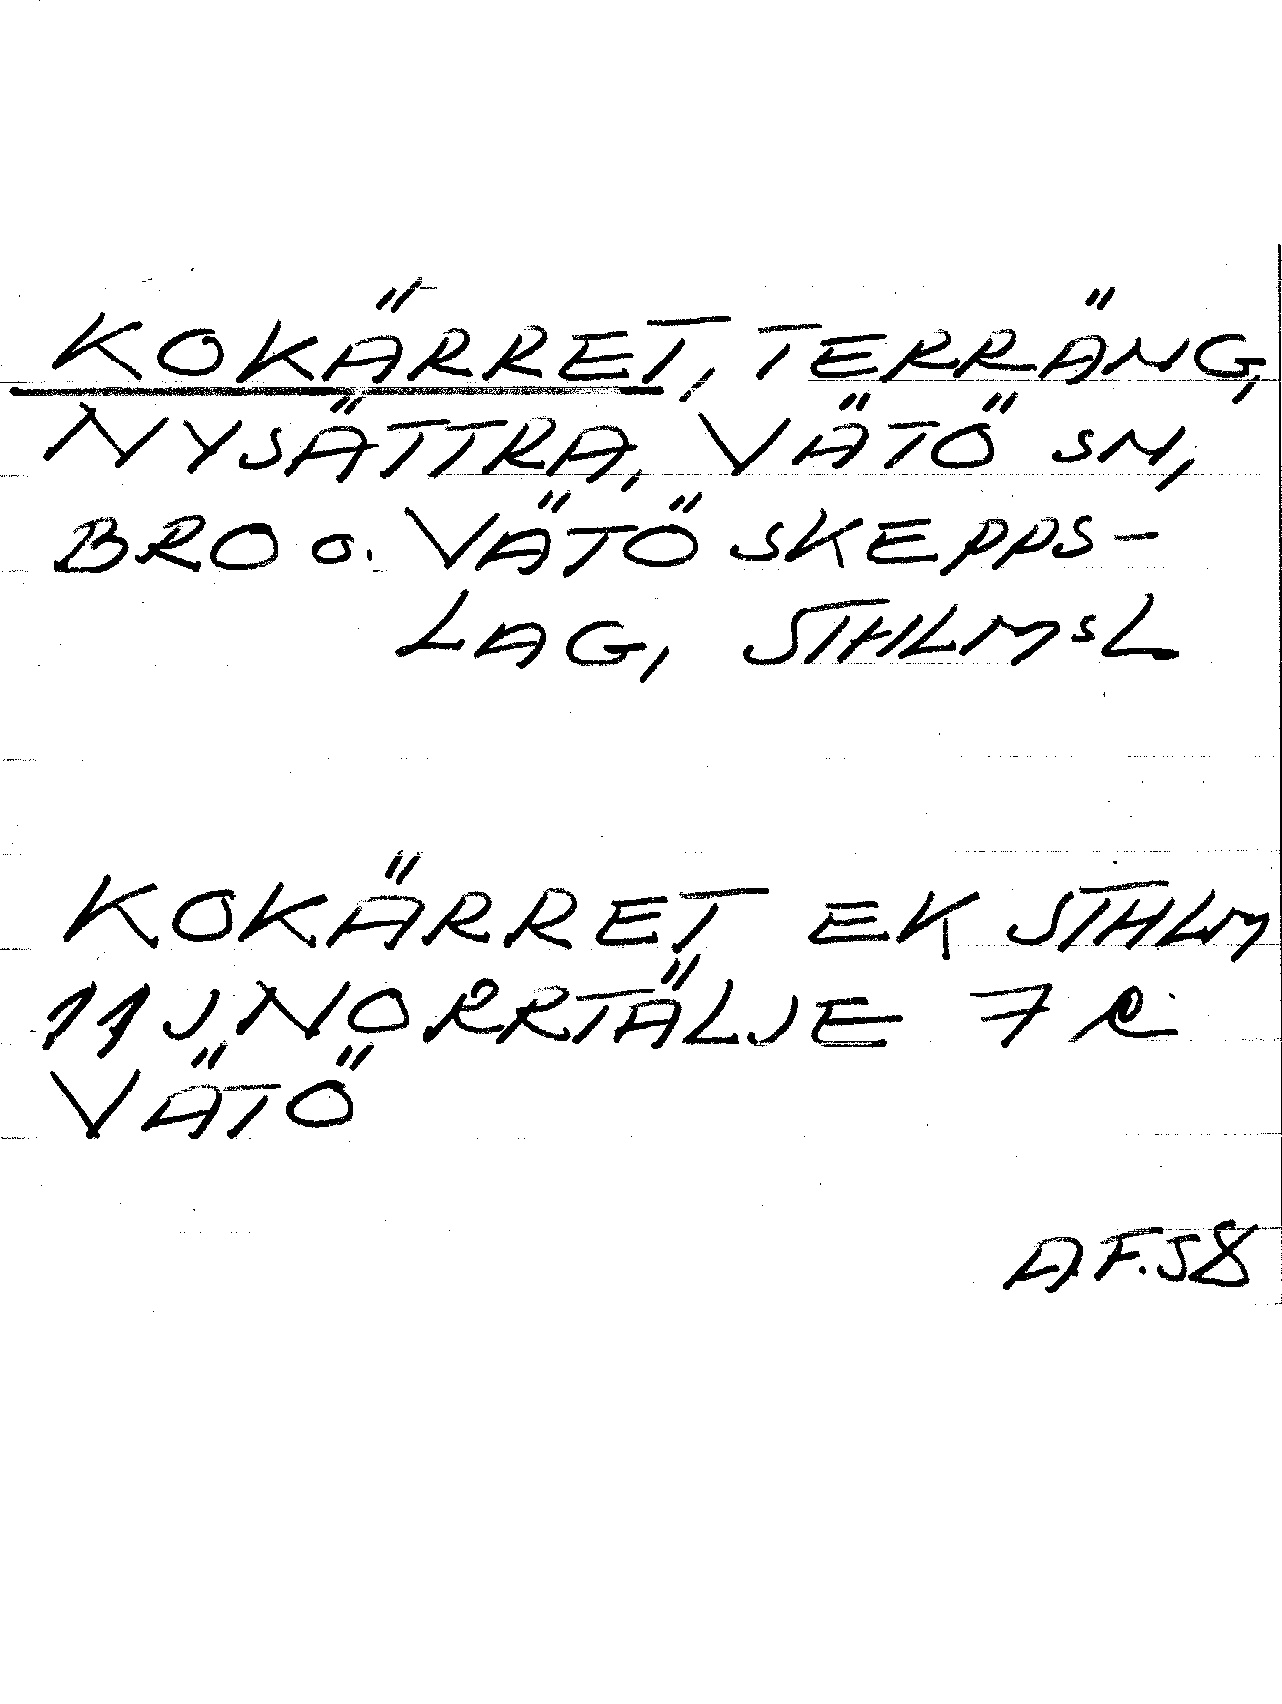 KOKÄRRET, TERRÄNG,
NYSÄTTRA, VÄTÖ SN,
BRO o. VÄTÖ SKEPPS-
LAG, STHLMSL
KOKÄRRET EK STHLM
11J NORRTÄLJE 7 e
VÄTÖ
A.F.58